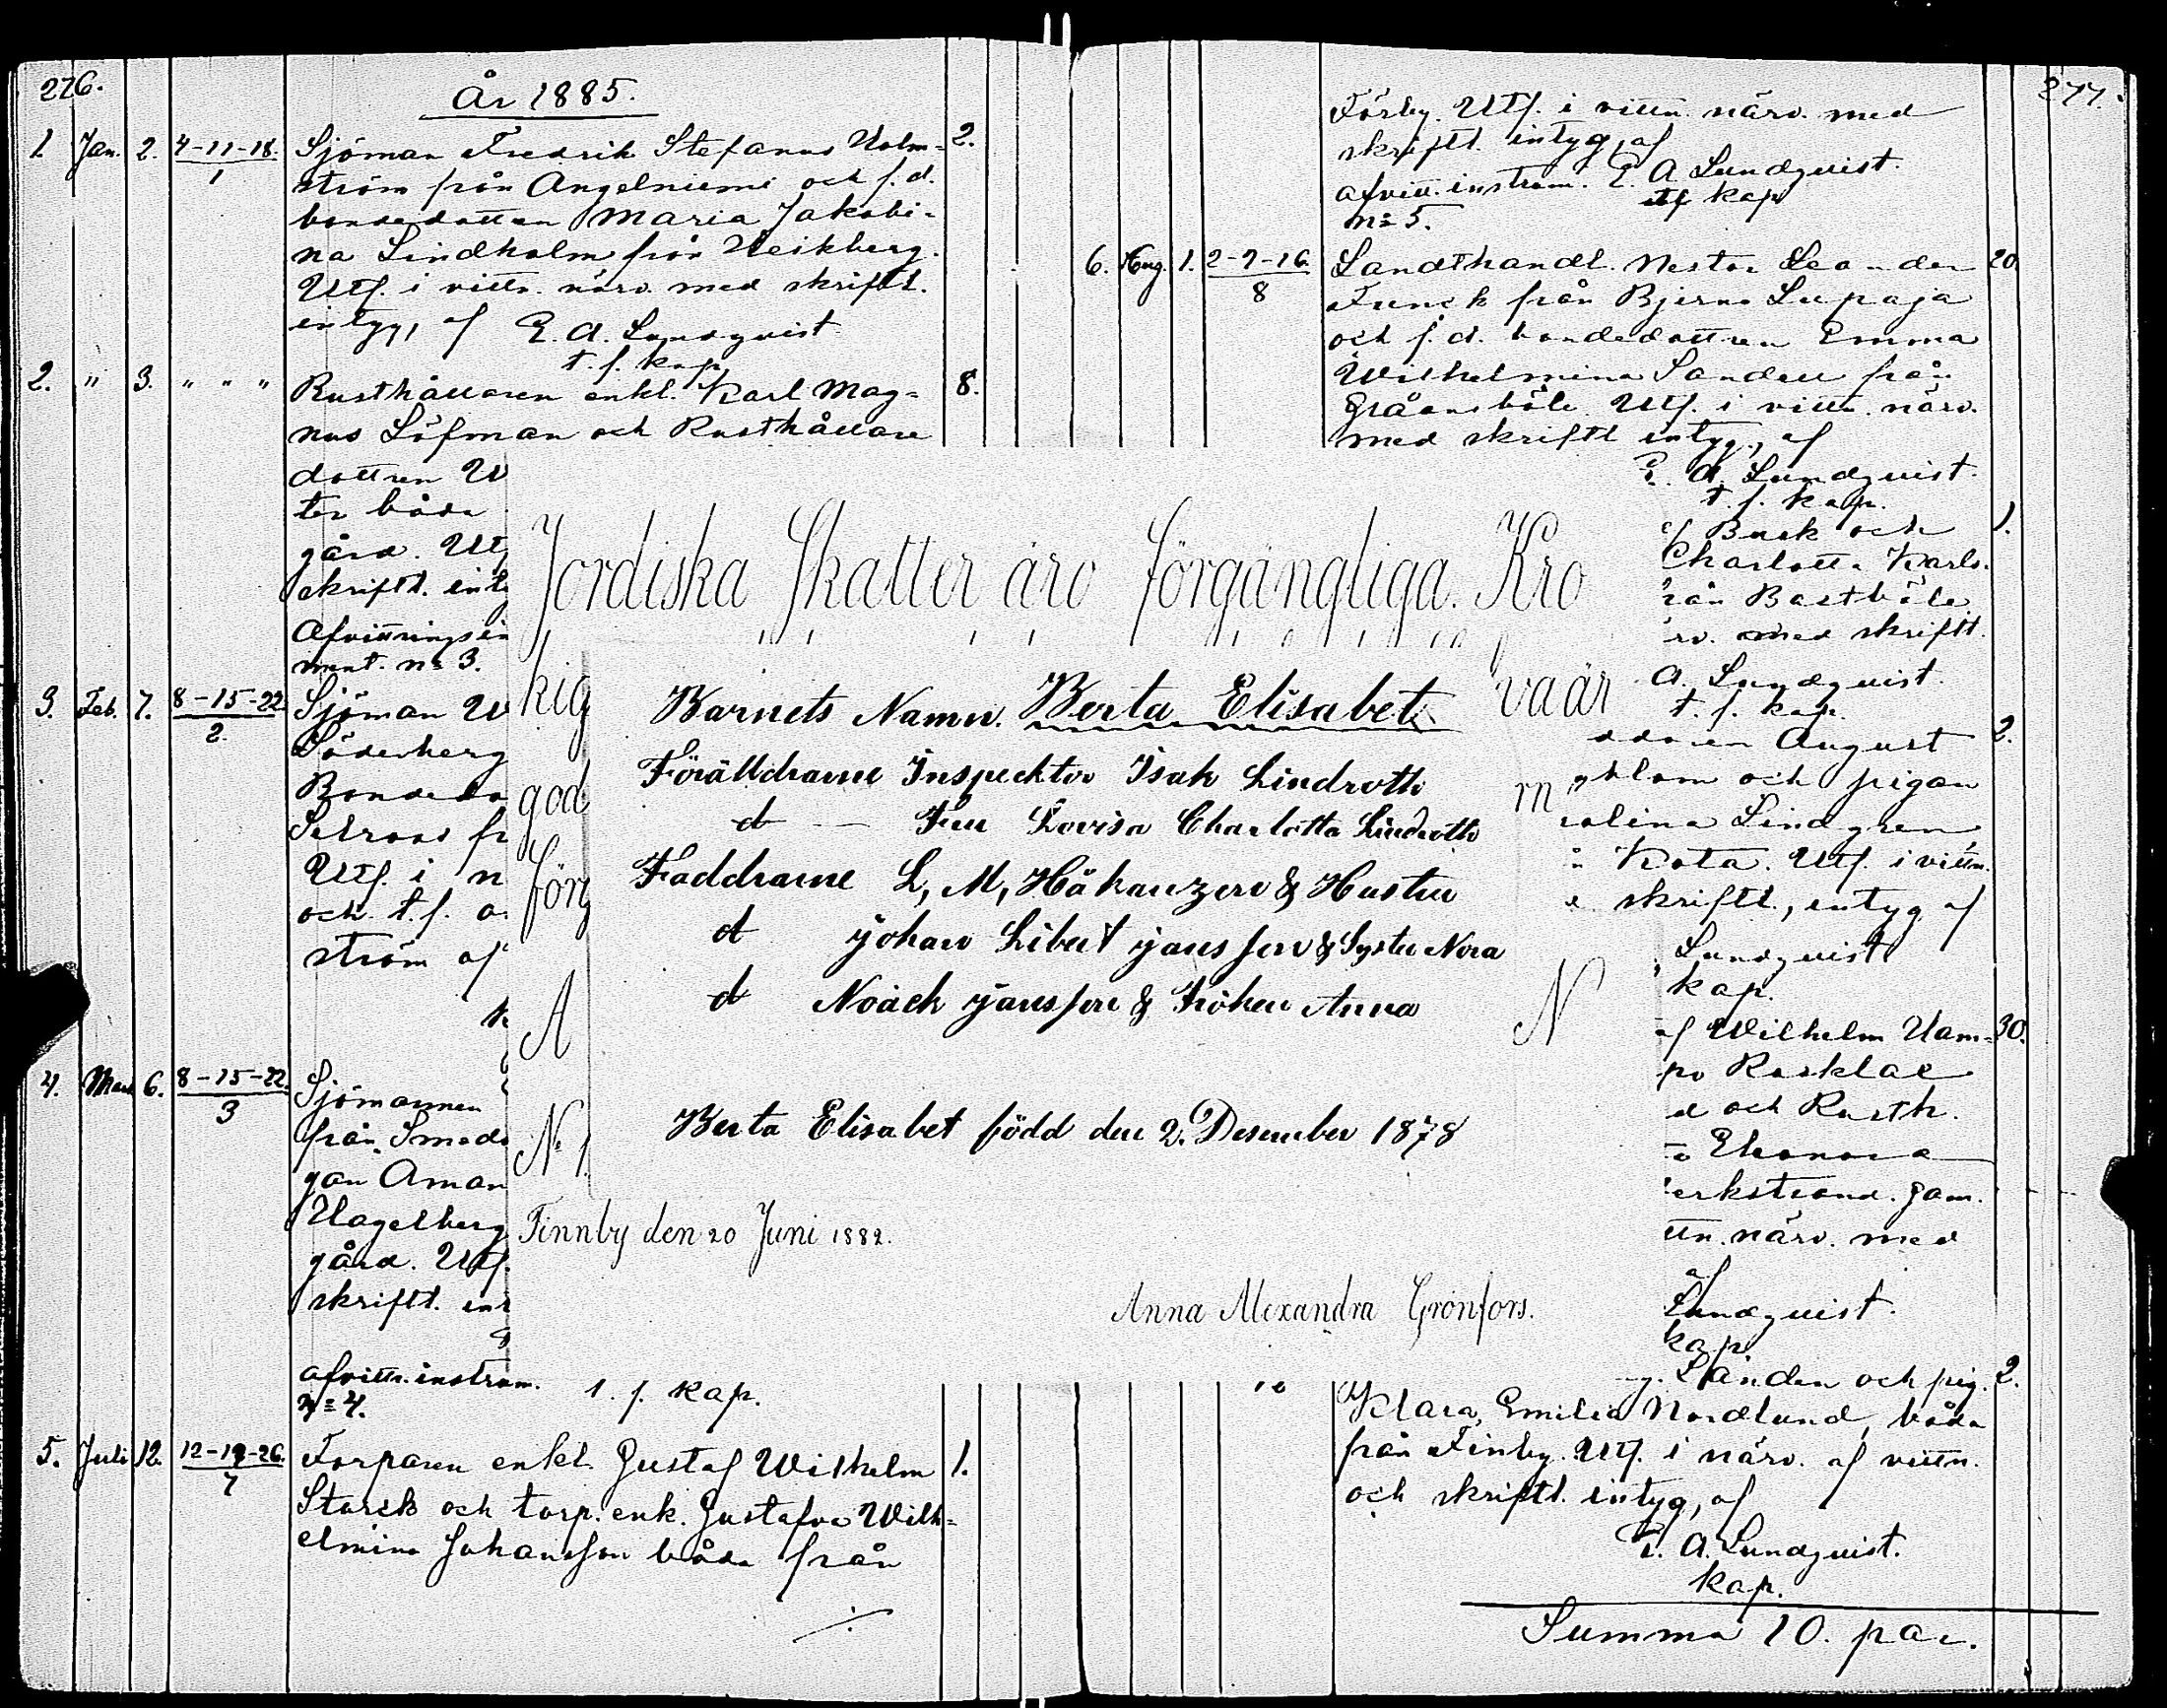 276.
År 1885.
1. Jan. 2. 4-11-18. Sjöman Fredrik Stefanus Holm- 2.
1
ström från Angelniemi och f.d.
bondedottren Maria Jakobi-
na Lindholm från Veikberg.
Utf. i vittn. närv. med skriftl.
intyg, af E. A. Lundqvist
t. f. kap.
2. " 3. " " " Rusthållaren enkl. Karl Mag- 8.
nus Löfman och Rusthållare
dottren W
ter båda
gård. Utf
skriftl. int
Afvittringsin
ment. n:o 3.
3. Feb. 7. 8-15-22. Sjöman W
2.
Söderberg
Bondedo
Selroos fr
Utf. i n
och t.f. o
ström af
4. Mars 6. 8-15-22. Sjömannen
3
från Smeds
gan Aman
Hagelberg
gård. Utf.
skriftl. int
afvittr. instrum. t. f. kap.
n:o 4.
5. Juli 12. 12-19-26. Torparen enkl. Gustaf Wilhelm 1.
7
Starck och torp. enk. Gustafva Wilh-
elmina Johansson båda från
Jordiska Skatter äro förgängliga. Kro
hig va är
god m
förg
A N
N:o 1.
Barnets Namn. Berta Elisabet
Föräldrarne Inspecktor Isak Lindroth
d — Fru Lovisa Charlotta Lindroth
Faddrarne L, M, Håkanzon & Hustru
d Johan Libert Jansson & Syster Nora
d Noach Jansson & Fröken Anna
Berta Elisabet född den 2. Desember 1878
Finnby den 20 Juni 1882.
Anna Alexandra Grönfors.
277.
Förby. Utf. i vittn. närv. med
skriftl. intyg, af
E. A. Lundqvist.
afvittr. instrum. tf kap
n:o 5.
6. Aug. 1. 2-9-16. Landthandl. Nestor Leander 20.
8
Funck från Bjerno Lupaja
och f. d. bondedottren Emma
Wilhelmina Sandell från
Gråansböle. Utf. i vittn. närv.
med skriftl intyg, af
E. A. Lundqvist.
t. f. kap.
af Busk och 1.
Charlotta Karls-
rån Bastböle
rv. med skriftl.
A. Lundqvist.
t. f. kap.
August 2.
blom och pigan
olina Lindgren
Kota. Utf. i vittn.
skriftl., intyg af
Lundqvist
kap.
af Wilhelm Ham- 30.
po Rosklae
d och Rusth.
Eleonora
erkstrand. Gam.
ttn. närv. med
af
Lundqvist.
kap
Landen och pig. 2.
Klara, Emilia Nordlund, båda
från Finby. Utf. i närv. af vittn.
och skriftl. intyg, af
E. A. Lundqvist.
kap.
Summa 10. par.